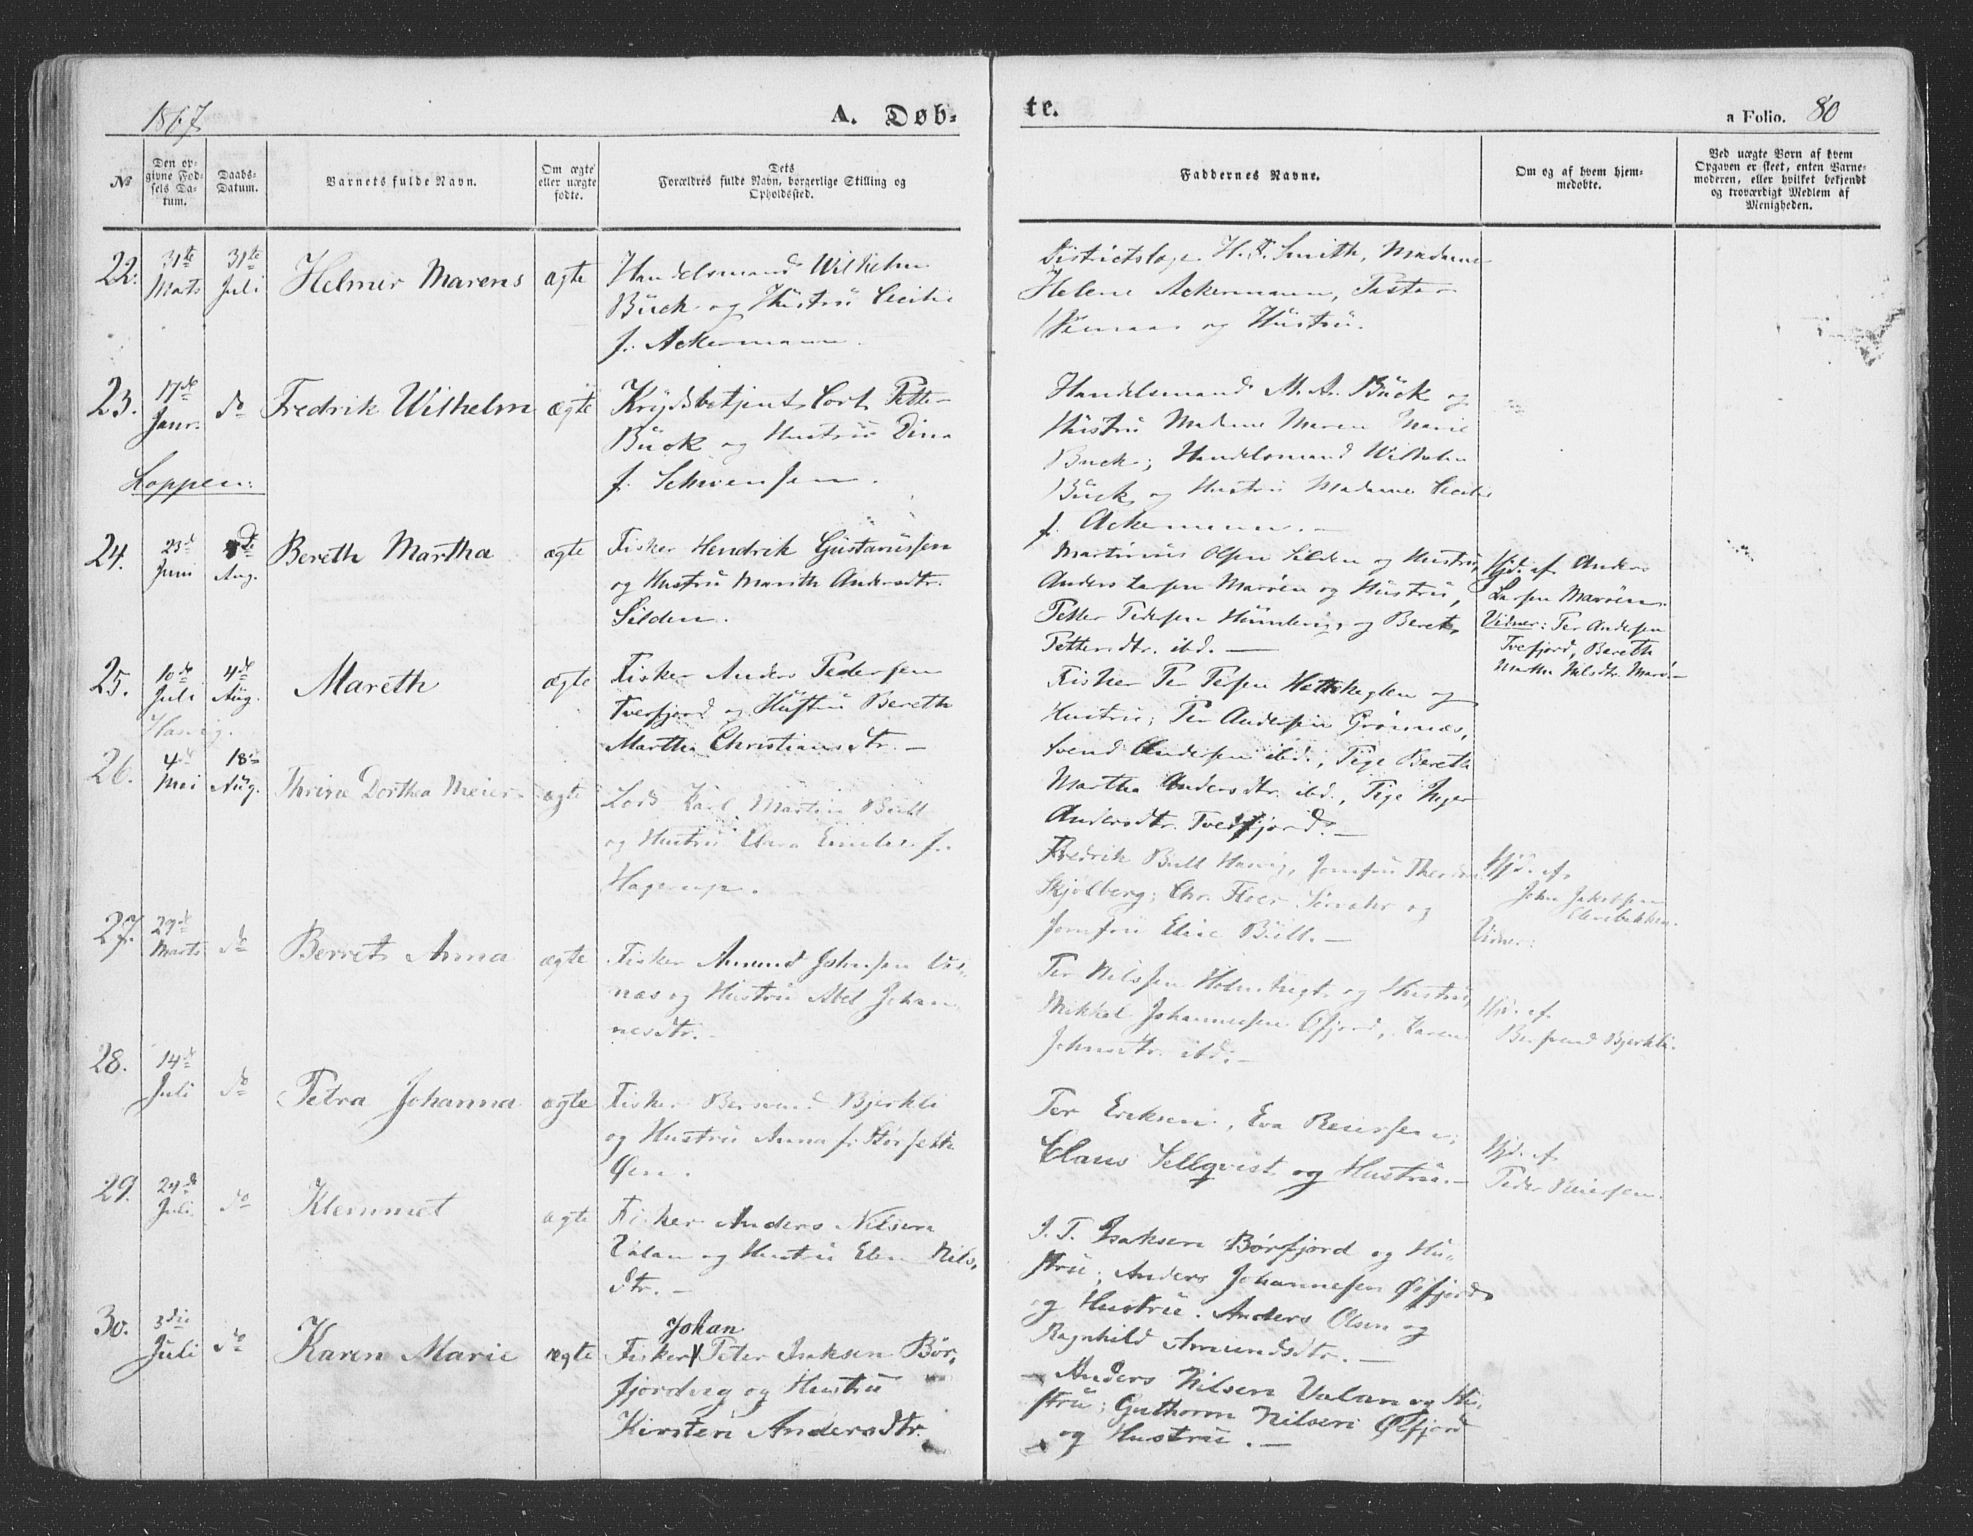 1867
A. Døb-
te.
a Folio. 80
No
Den op-
givne Fød-
sels Da-
tum.
Daabs-
Datum.
Barnets fulde Navn.
Om ægte
eller uægte
fødte.
Dets
Forældres fulde Navn, borgerlige Stilling og
Opholdssted.
Faddernes Navne.
Om og af hvem hjem-
medøbte.
Ved uægte Børn af hvem
Opgaven er skeet, enten Barne-
moderen, eller hvilket bekjendt
og troværdigt Medlem af
Menigheden.
22.
31te
Mats
31te
Juli
Helmer Marens
ægte
Handelsmand Wilhelm
Buck og Hustru Cecilie
f. Ackermann.
H. Smith, Madame
Helene Ackermann,
og Hustru.
23.
17de
Janr.
do
Fredrik Wilhelm
ægte
Krydsbetjent Cort Petter
Buck og Hustru Dina
f. Schwensen.
Handelsmand M. A. Buck og
Hustru Madame Maren Marie
Buck; Handelsmand Wilhelm
Buck og Hustru Madame Cecilie
f. Ackermann. —
Loppen:
24.
23d
Juni
Aug.
Bereth Martha
ægte
Fisker Hendrik Gustavussen
og Hustru Marith Andersdtr.
Silden.
Martinus Olsen Silden og Hustru,
Anders Larsen Marøen og Hustru,
Petter Pedersen og Beret
Pettersdtr. ibd. —
Hjd. af Anders
Larsen Marøen.
Vidner: Per Andersen
Tverfjord, Bereth
Martha Nilsdtr. Marø—
25.
10de
Juli
4de
Aug.
Mareth
ægte
Fisker Anders Pedersen
Tverfjord og Hustru Bereth
Martha Christiansdtr. —
Fisker Per og
Hustru; Per Andersen Grønnæs,
Svend Andersen ibd., Pige Bereth
Martha Andersdtr. ibd., Pige Inger
Andersdtr. Tverfjord. —
Hasvig.
26.
4de
Mei
18de
Aug.
Thrine Dorthea Meier
ægte
Lods Karl Martin Bull
og Hustru f.
Hagerup.
Fredrik Bull Hasvig, Jomfru
Skjølberg; Chr. Sørvær og
Jomfru Elise Bull. —
Hjd. af
John Jakobsen
Vidner:
27.
29de
Marts
do
Berret Anna
ægte
Fisker Amund Johnsen
næs og Hustru Abel Johan-
nesdtr. —
Per Nilssen og Hustru,
Mikkel Johannesen Øfjord, Karen
Johnsdtr. ibd. —
Hjd. af
Bernhard Bjerkli.
28.
14d
Juli
do
Petra Johanna
ægte
Fisker Bjerkli
og Hustru Anna f.
Øen.
Per Eriksen, Eva Reiersen;
Claus Sellqvist og Hustru. —
Hjd. af
Peder Reiersen.
29.
24de
Juli
do
Klemmet
ægte
Fisker Anders Nilsen
Valan og Hustru Elen Nils-
dtr. —
J. P. Isaksen Børfjord og Hu-
stru; Anders Johannesen Øfjord
og Hustru. Anders Olsen og
Ragnhild Amundsdtr. —
30.
3die
Juli
do
Karen Marie
ægte
Johan
Fisker Peter Isaksen Bør-
fjordvig og Hustru
Kirsten Andersdtr.
Anders Nilsen Valan og Hu-
stru; Guthorm Nilsen Øfjord
og Hustru. —